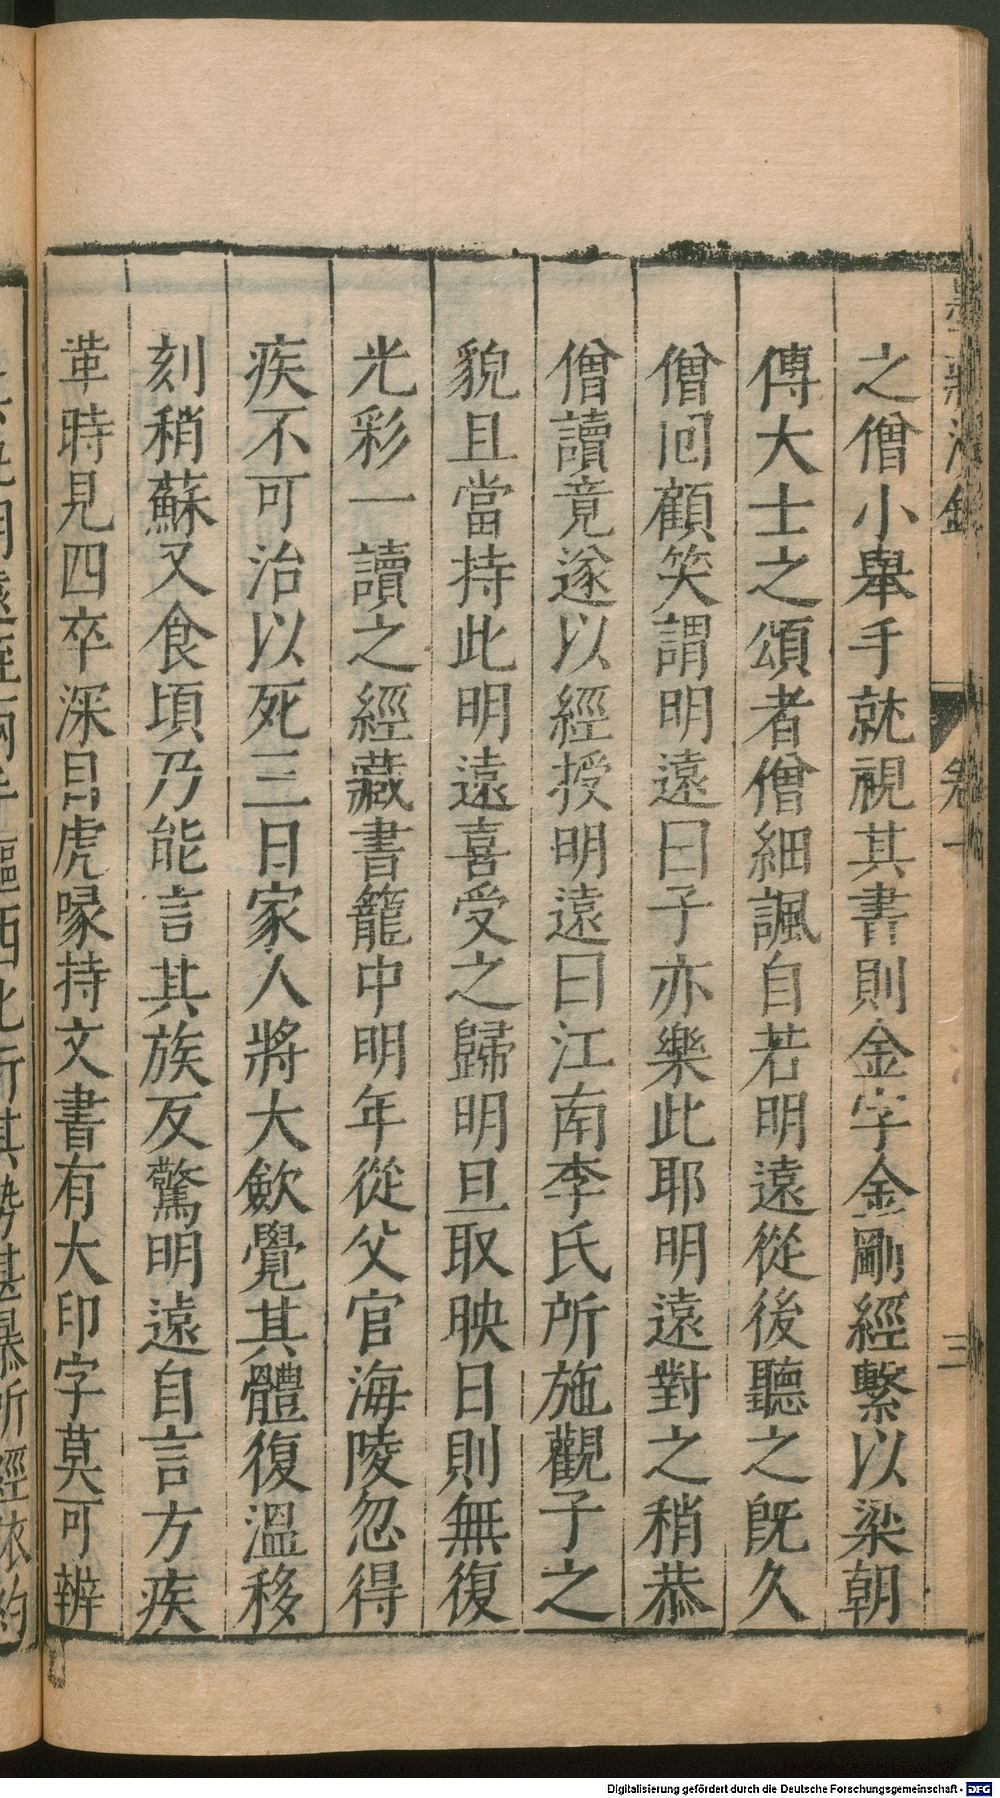 卷一
三
之僧小舉手就視其書則金字金剛經繫以梁朝
傳大士之頌者僧細諷自若明遠從後聽之旣久
僧囘顧笑謂明遠曰子亦樂此耶明遠對之稍恭
僧讀竟遂以經授明遠曰江南李氏所施觀子之
貌且當持此明遠喜受之歸明旦取映日則無復
光彩一讀之經藏書籠中明年從父官海陵忽得
疾不可治以死三日家人將大斂覺其體復溫移
刻稍蘇又食頃乃能言其族反驚明遠自言方疾
革時見四卒深目虎喙持文書有大印字莫可辨
Digitalisierung gefördert durch die Deutsche Forschungsgemeinschaft - DFG